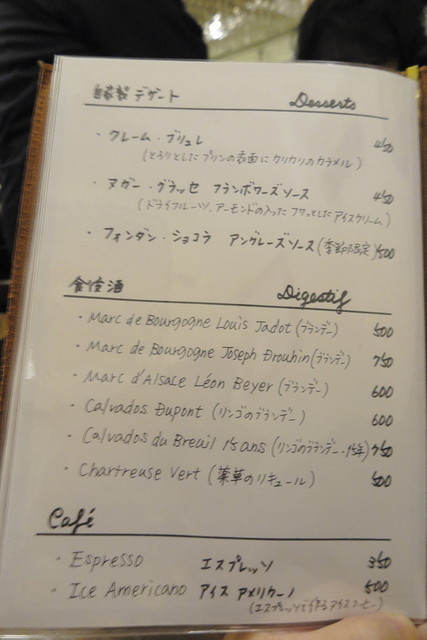 自家製 デザート Desserts
・クレーム・ブリュレ 450
(とろりとしたプリンの表面にカリカリのカラメル)
・ヌガー・グラッセ フランボワーズソース 450
(ドライフルーツ、アーモンドの入ったフワっとしたアイスクリーム)
・フォンダン・ショコラ アングレーズソース(季節限定) 500
食後酒 Digestif
・Marc de Bourgogne Louis Jadot (ブランデー) 500
・Marc de Bourgogne Joseph Drouhin (ブランデー) 750
・Marc d'Alsace Léon Beyer (ブランデー) 600
・Calvados Dupont (リンゴのブランデー) 600
・Calvados du Breuil 15ans (リンゴのブランデー・15年) 750
・Chartreuse Vert (薬草のリキュール) 500
Café
・Espresso エスプレッソ 350
・Ice Americano アイス アメリカーノ 500
(エスプレッソで作るアイスコーヒー)